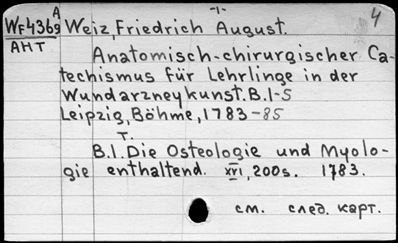 -1-
A
4
WF4369 Weiz, Friedrich August.
АНТ
Anatomisch-chirurgischer Ca-
techismus für Lehrlinge in der
Wundarzneykunst. B.1-5
Leipzig, Böhme, 1783-85
T.
B.1. Die Osteologie und Myolo-
gie enthaltend. XVI, 200s. 1783.
см. след. карт.